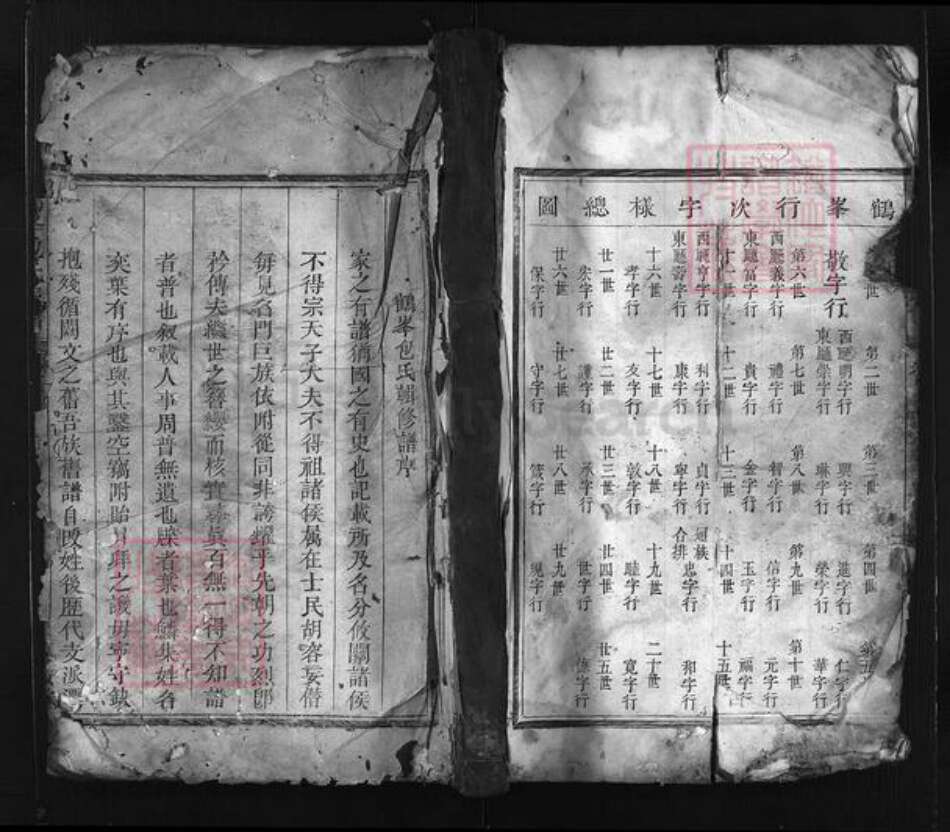 鶴峯行次字樣總圖
第二世 第三世 第四世
敬字行
西廳明字行 興字行 進字行 仁字行
東廳崇字行 琳字行 榮字行 華字行
第六世 第七世 第八世 第九世 第十世
西廳義字行 禮字行 智字行 信字行 元字行
東廳富字行 貴字行 金字行 玉字行 福字行
十一世 十二世 十三世 十四世 十五世
西廳亨字行 利字行 貞字行 通族 忠字行 和字行
東廳壽字行 康字行 寧字行 合排
十六世 十七世 十八世 十九世 二十世
孝字行 友字行 敦字行 睦字行 寬字行
廿一世 廿二世 廿三世 廿四世 廿五世
朱字行 謹字行 承字行 世字行
廿六世 廿七世 廿八世 廿九世
保字行 守字行
鶴峯包氏輯修譜序
家之有譜猶國之有史也記載所及名分攸關諸侯
不得宗天子大夫不得祖諸侯屬在士民胡容妄僭
每見名門巨族依附從同非誇耀乎先朝之功烈卽
矜傳夫繼世之簪纓而核實尋眞百無一得不知譜
者普也敘載人事周普無遺也牒者葉也鱗集姓名
奕葉有序也與其鑿空竊附貽拜之譏毋寧守缺
抱殘循闕文之舊吾族舊譜自改姓後歷代支派